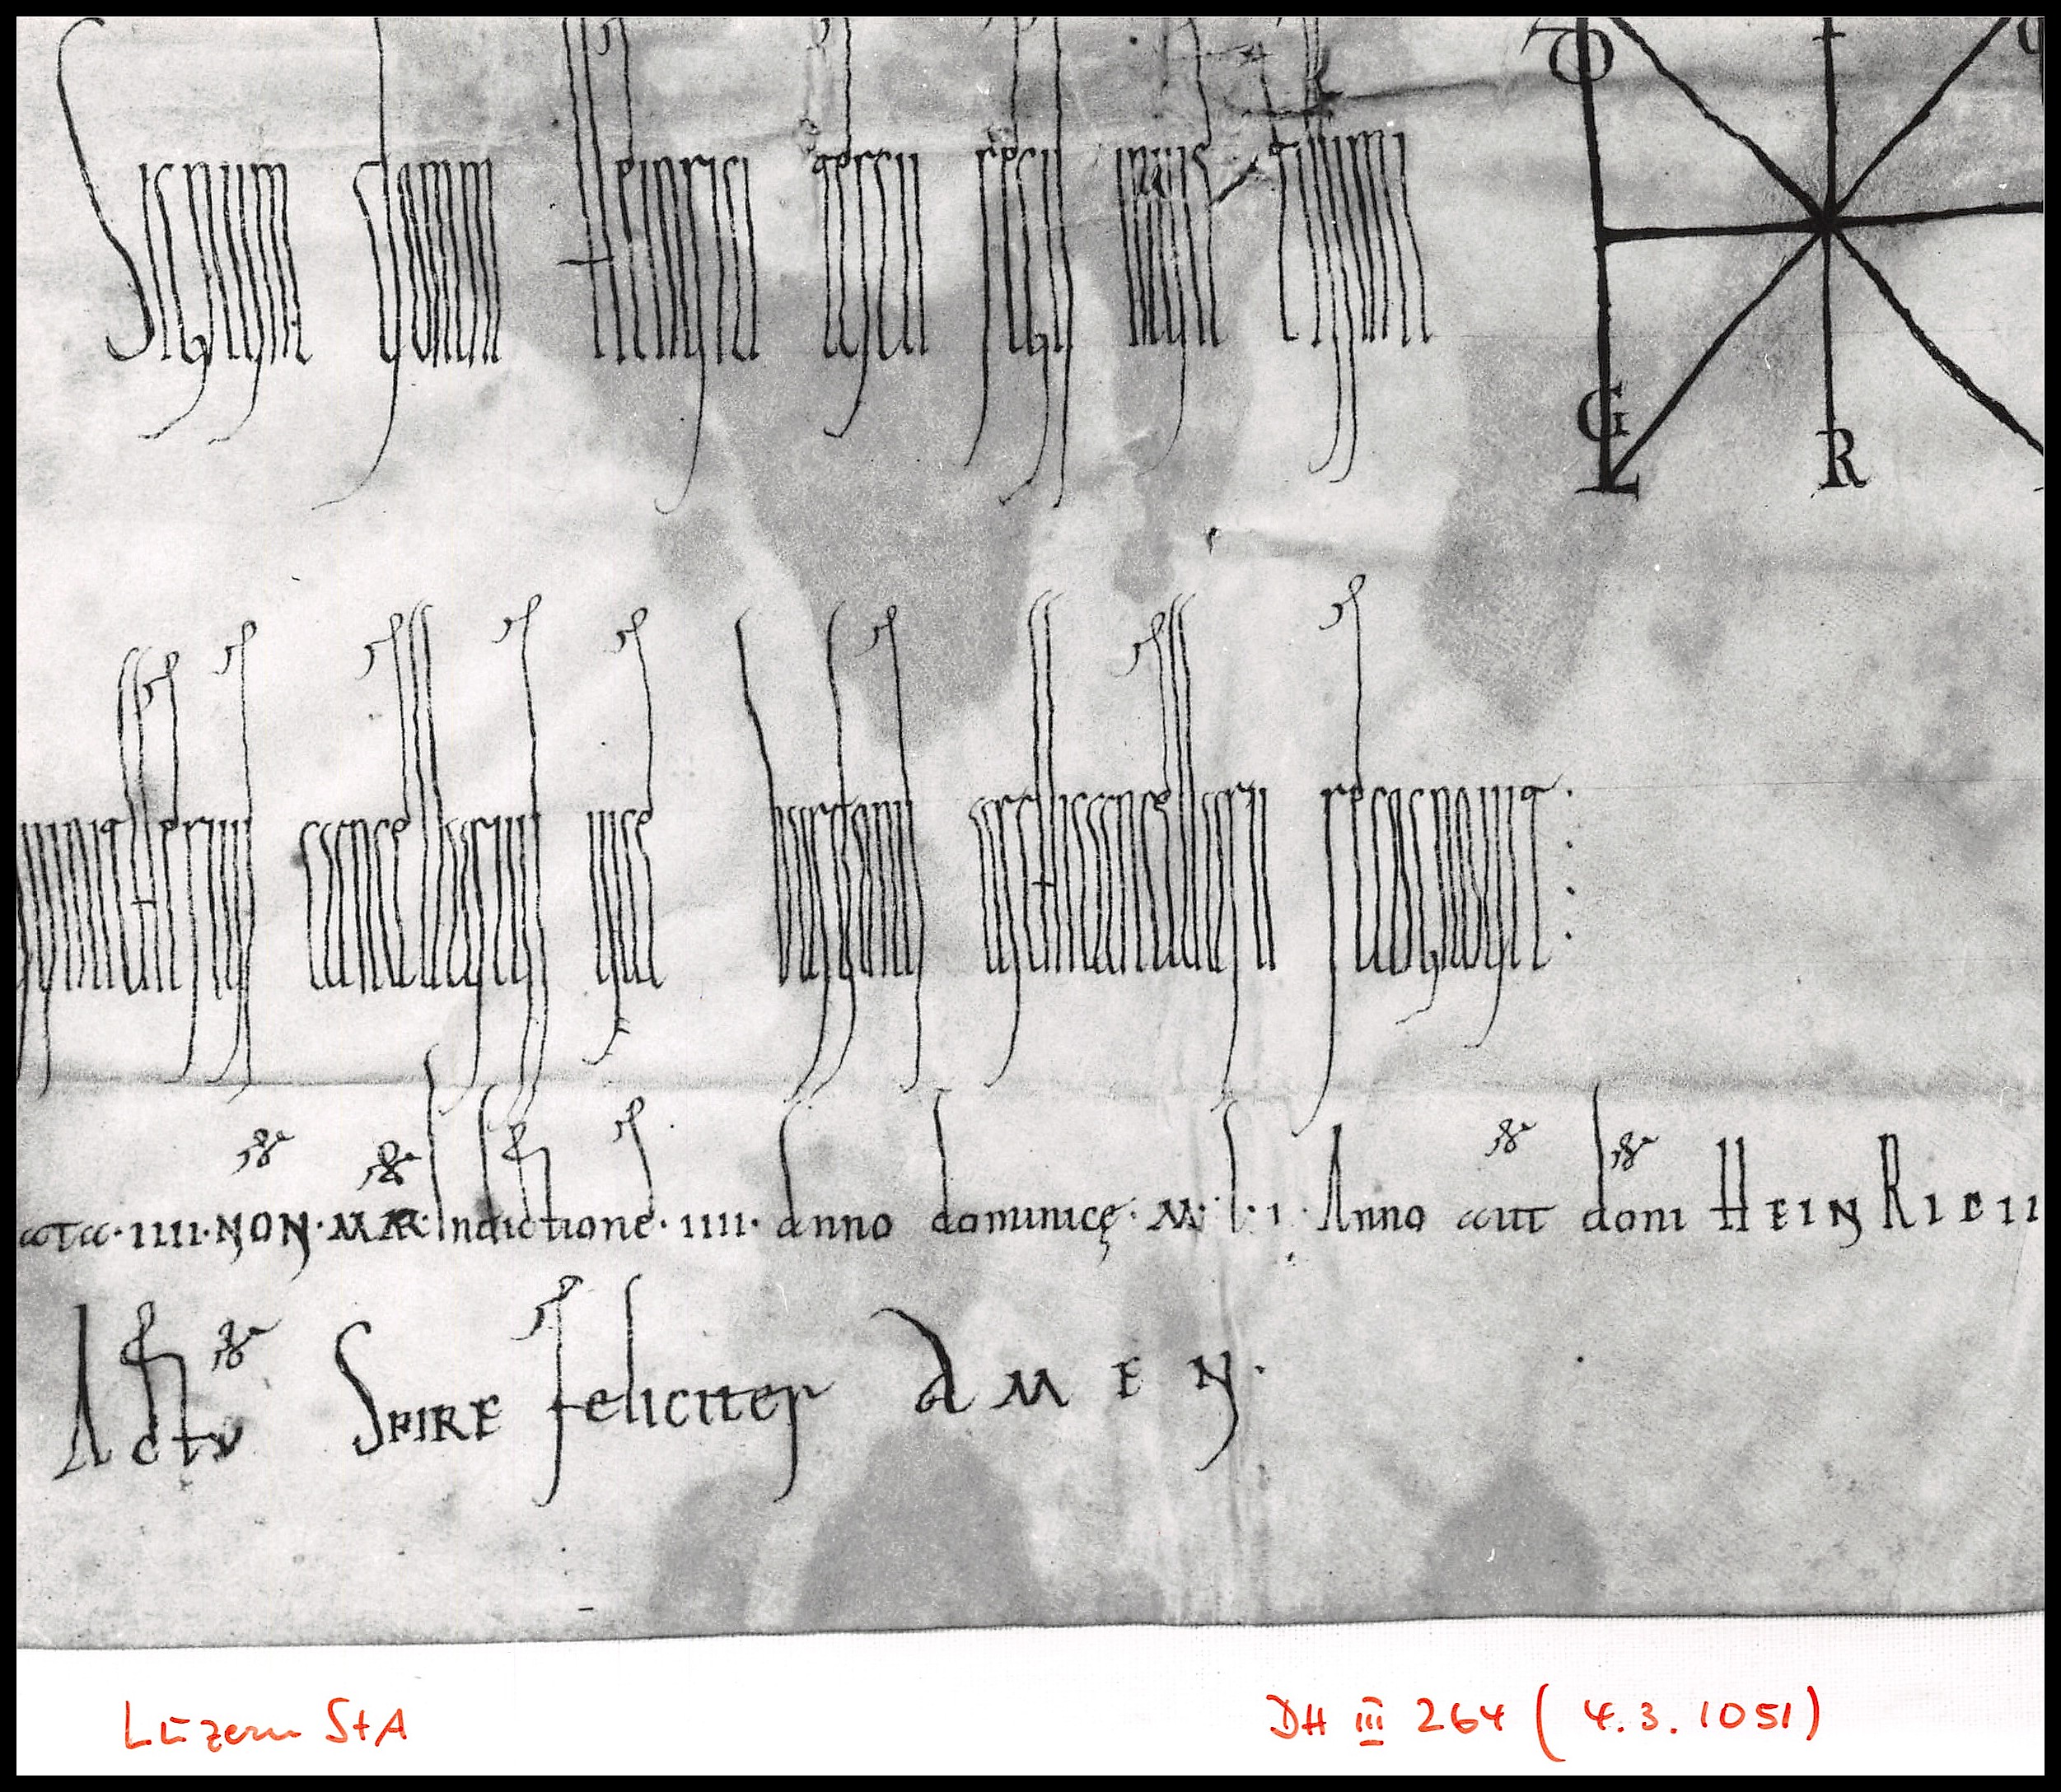 Signum domni Heinrici tercii regis inuictissimi
uuinitherius cancellarius uice bardonis archicancellarii recognouit
ata·IIII·NON·MAR·Indictione·IIII·anno dominicę·M·l·i·Anno aut domi HEINRICII
Actv SPIRE feliciter AMEN·
G
R
Luzern StA
DH III 264 (4.3.1051)